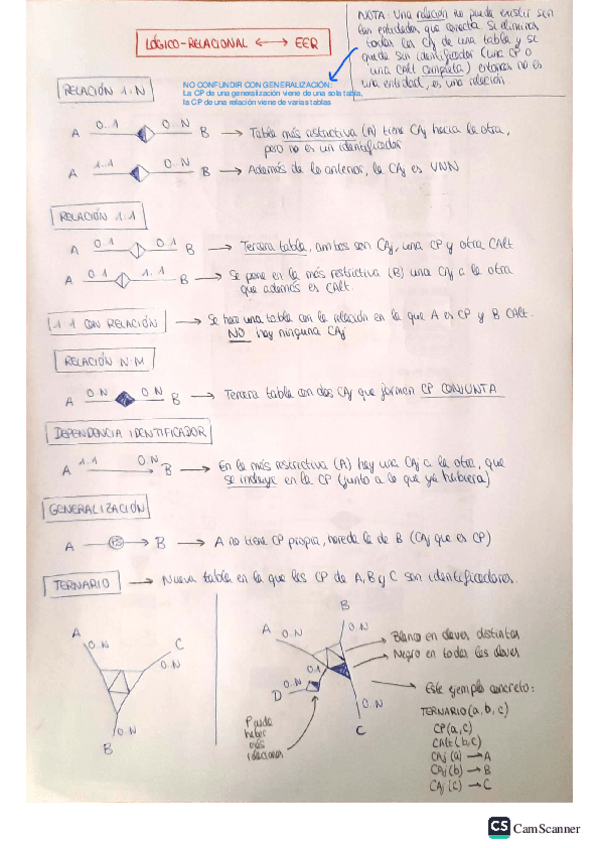 LÓGICO-RELACIONAL ⟷ EER
NOTA: Una relación no puede existir sin
las entidades que conecta. Si eliminas
todas las CAj de una tabla y se
queda sin identificador (una CP o
una CAlt completa) entonces no es
una entidad, es una relación.
NO CONFUNDIR CON GENERALIZACIÓN:
La CP de una generalización viene de una sola tabla,
la CP de una relación viene de varias tablas
RELACIÓN 1:N
A 0..1 0..N B → Tabla más restrictiva (A) tiene CAj hacia la otra,
pero no es un identificador
A 1..1 0..N B → Además de lo anterior, la CAj es VNN
RELACIÓN 1:1
A 0..1 0..1 B → Tercera tabla, ambos son CAj, una CP y otra CAlt
A 0..1 1..1 B → Se pone en la más restrictiva (B) una CAj a la otra
que además es CAlt.
1:1 CON RELACIÓN → Se hace una tabla con la relación en la que A es CP y B CAlt.
NO hay ninguna CAj
RELACIÓN N:M
A 0..N 0..N B → Tercera tabla con dos CAj que formen CP CONJUNTA
DEPENDENCIA IDENTIFICADOR
A 1..1 0..N B → En la más restrictiva (A) hay una CAj a la otra, que
se incluye en la CP (junto a lo que ya hubiera)
GENERALIZACIÓN
A → B → A no tiene CP propia, hereda la de B (CAj que es CP)
TERNARIO → Nueva tabla en la que las CP de A, B y C son identificadores.
A 0..N
C
0..N
0..N
B
B
A 0..N
0..N
0..1
0..N
D
0..N
C
Puede
haber
más
relaciones
Blanco en claves distintas
Negro en todas las claves
Este ejemplo concreto:
TERNARIO (a, b, c)
CP (a, c)
CAlt (b, c)
CAj (a) → A
CAj (b) → B
CAj (c) → C
CS CamScanner